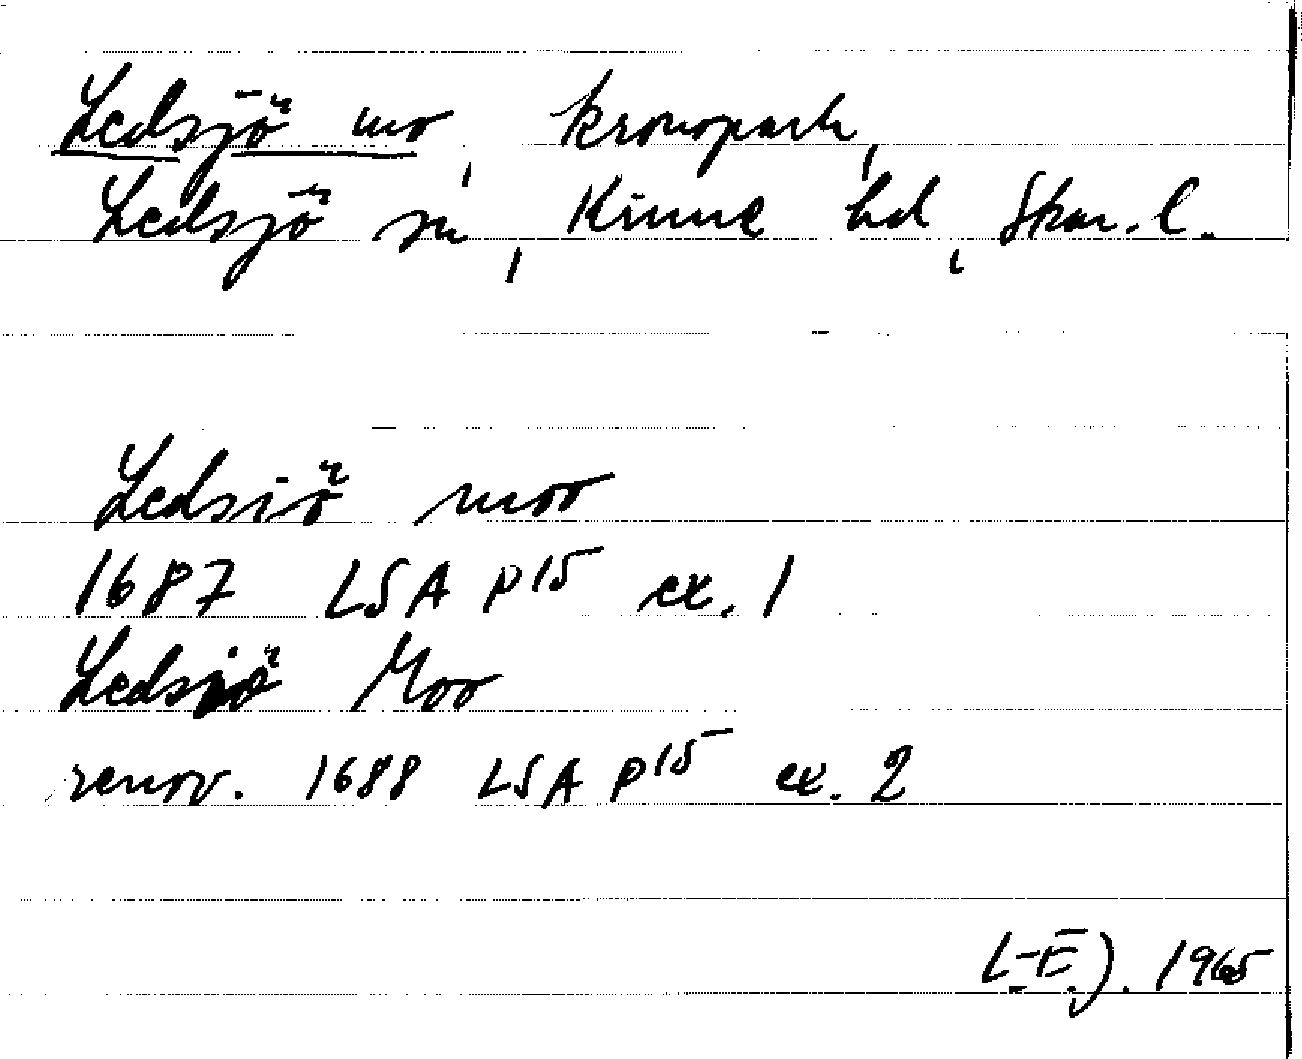 Ledsjö mo, kronopark,
Ledsjö sn, Kinne hd, Skar. l.
Ledsiö moo
1687 LSA P15 ex. 1
Ledsiö Moo
renov. 1688 LSA P15 ex. 2
L-E J. 1965